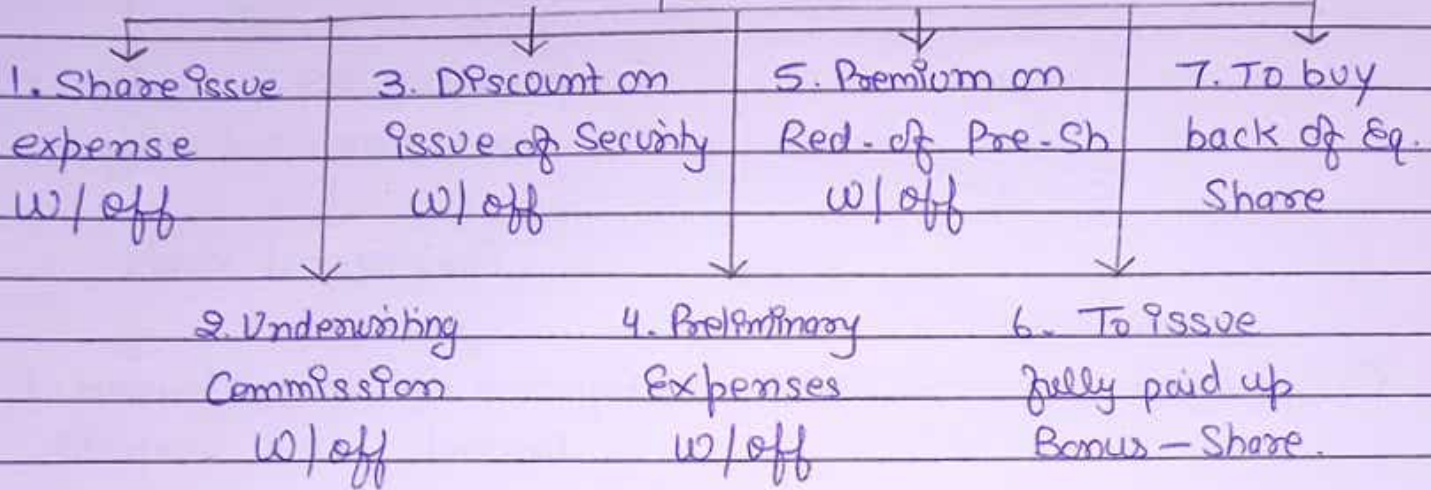 1. Share issue
expense
W/off
3. Discount on
issue of Security
W/off
5. Premium on
Red. of Pre-Sh
W/off
7. To buy
back of Eq.
Share
2. Underwriting
Commission
W/off
4. Preliminary
Expenses
W/off
6. To issue
fully paid up
Bonus - Share.